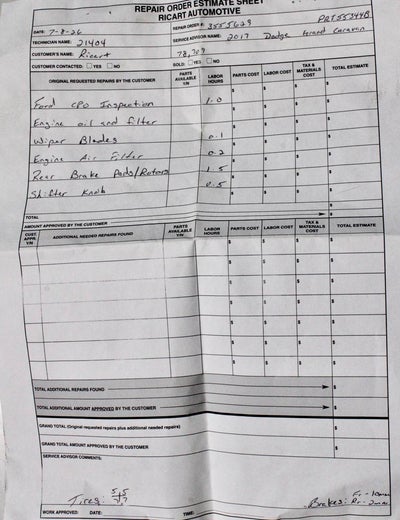 REPAIR ORDER ESTIMATE SHEET
RICART AUTOMOTIVE
DATE: 7-8-26 REPAIR ORDER #: 3555629 PRT55344B
TECHNICIAN NAME: 21404 SERVICE ADVISOR NAME: 2017 Dodge Grand Caravan
CUSTOMER'S NAME: Ricart 78,789
CUSTOMER CONTACTED: YES NO SOLD: YES NO
ORIGINAL REQUESTED REPAIRS BY THE CUSTOMER PARTS AVAILABLE Y/N LABOR HOURS PARTS COST LABOR COST TAX & MATERIALS COST TOTAL ESTIMATE
Ford CPO Inspection 1.0 $ $ $ $
Engine oil and filter $ $ $ $
Wiper Blades 0.1 $ $ $ $
Engine Air Filter 0.2 $ $ $ $
Rear Brake Pads/Rotors 1.5 $ $ $ $
Shifter Knob 0.5 $ $ $ $
TOTAL $
AMOUNT APPROVED BY THE CUSTOMER $
CUST. APPR. Y/N ADDITIONAL NEEDED REPAIRS FOUND PARTS AVAILABLE Y/N LABOR HOURS PARTS COST LABOR COST TAX & MATERIALS COST TOTAL ESTIMATE
$ $ $ $
$ $ $ $
$ $ $ $
$ $ $ $
$ $ $ $
$ $ $ $
$ $ $ $
TOTAL ADDITIONAL REPAIRS FOUND $
TOTAL ADDITIONAL AMOUNT APPROVED BY THE CUSTOMER $
GRAND TOTAL (Original requested repairs plus additional needed repairs) $
GRAND TOTAL AMOUNT APPROVED BY THE CUSTOMER $
SERVICE ADVISOR COMMENTS:
Tires: 5 5
Brakes:
WORK APPROVED: DATE: TIME: